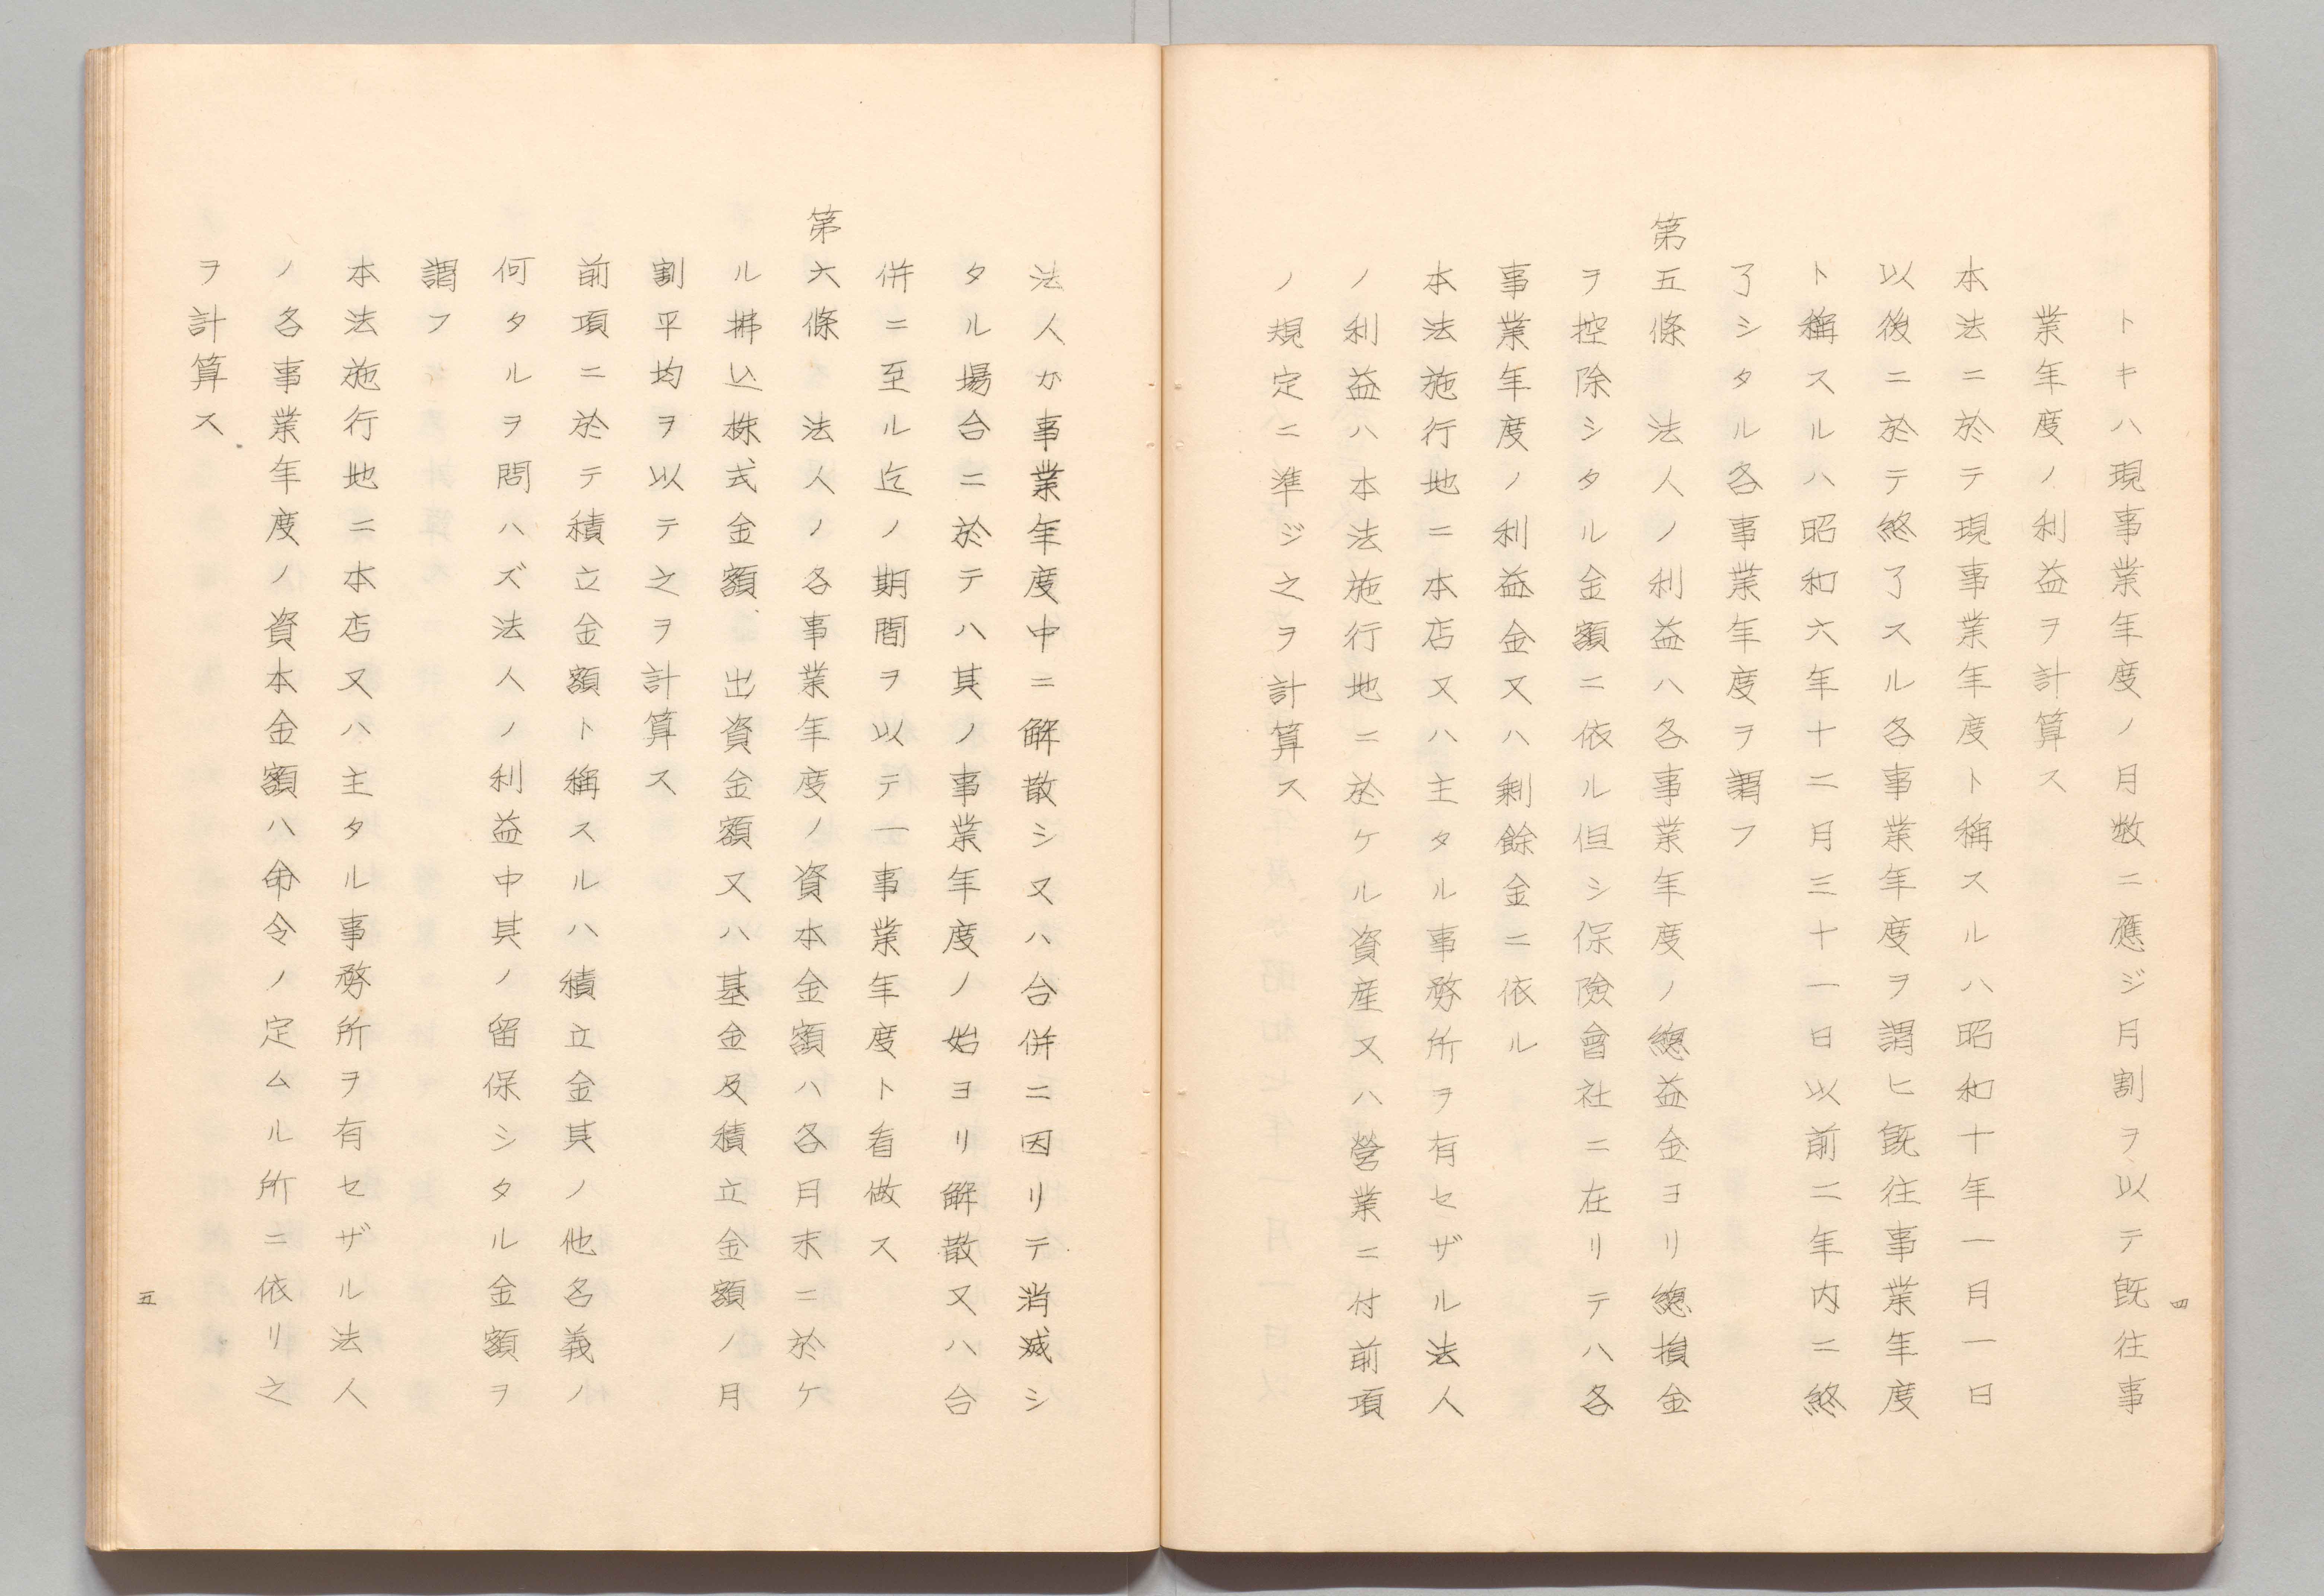 トキハ現事業年度ノ月数ニ應ジ月割ヲ以テ既往事
業年度ノ利益ヲ計算ス
本法ニ於テ現事業年度ト稱スルハ昭和十年一月一日
以後ニ於テ終了スル各事業年度ヲ謂ヒ既往事業年度
ト稱スルハ昭和六年十二月三十一日以前二年内ニ終
了シタル各事業年度ヲ謂フ
第五條　法人ノ利益ハ各事業年度ノ總益金ヨリ總損金
ヲ控除シタル金額ニ依ル但シ保險會社ニ在リテハ各
事業年度ノ利益金又ハ剰餘金ニ依ル
本法施行地ニ本店又ハ主タル事務所ヲ有セザル法人
ノ利益ハ本法施行地ニ於ケル資産又ハ營業ニ付前項
ノ規定ニ準ジ之ヲ計算ス
四
法人が事業年度中ニ解散シ又ハ合併ニ因リテ消滅シ
タル場合ニ於テハ其ノ事業年度ノ始ヨリ解散又ハ合
併ニ至ル迄ノ期間ヲ以テ一事業年度ト看做ス
第六條　法人ノ各事業年度ノ資本金額ハ各月末ニ於ケ
ル拂込株式金額　出資金額又ハ基金及積立金額ノ月
割平均ヲ以テ之ヲ計算ス
前項ニ於テ積立金額ト稱スルハ積立金其ノ他名義ノ
何タルヲ問ハズ法人ノ利益中其ノ留保シタル金額ヲ
謂フ
本法施行地ニ本店又ハ主タル事務所ヲ有セザル法人
ノ各事業年度ノ資本金額ハ命令ノ定ムル所ニ依リ之
ヲ計算ス
五